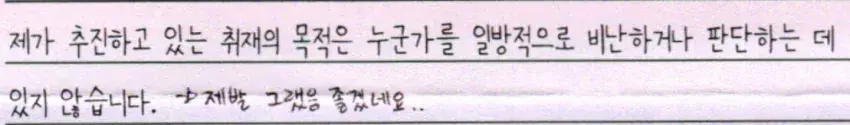 제가 추진하고 있는 취재의 목적은 누군가를 일방적으로 비난하거나 판단하는 데
있지 않습니다. → 제발 그랬음 좋겠네요..